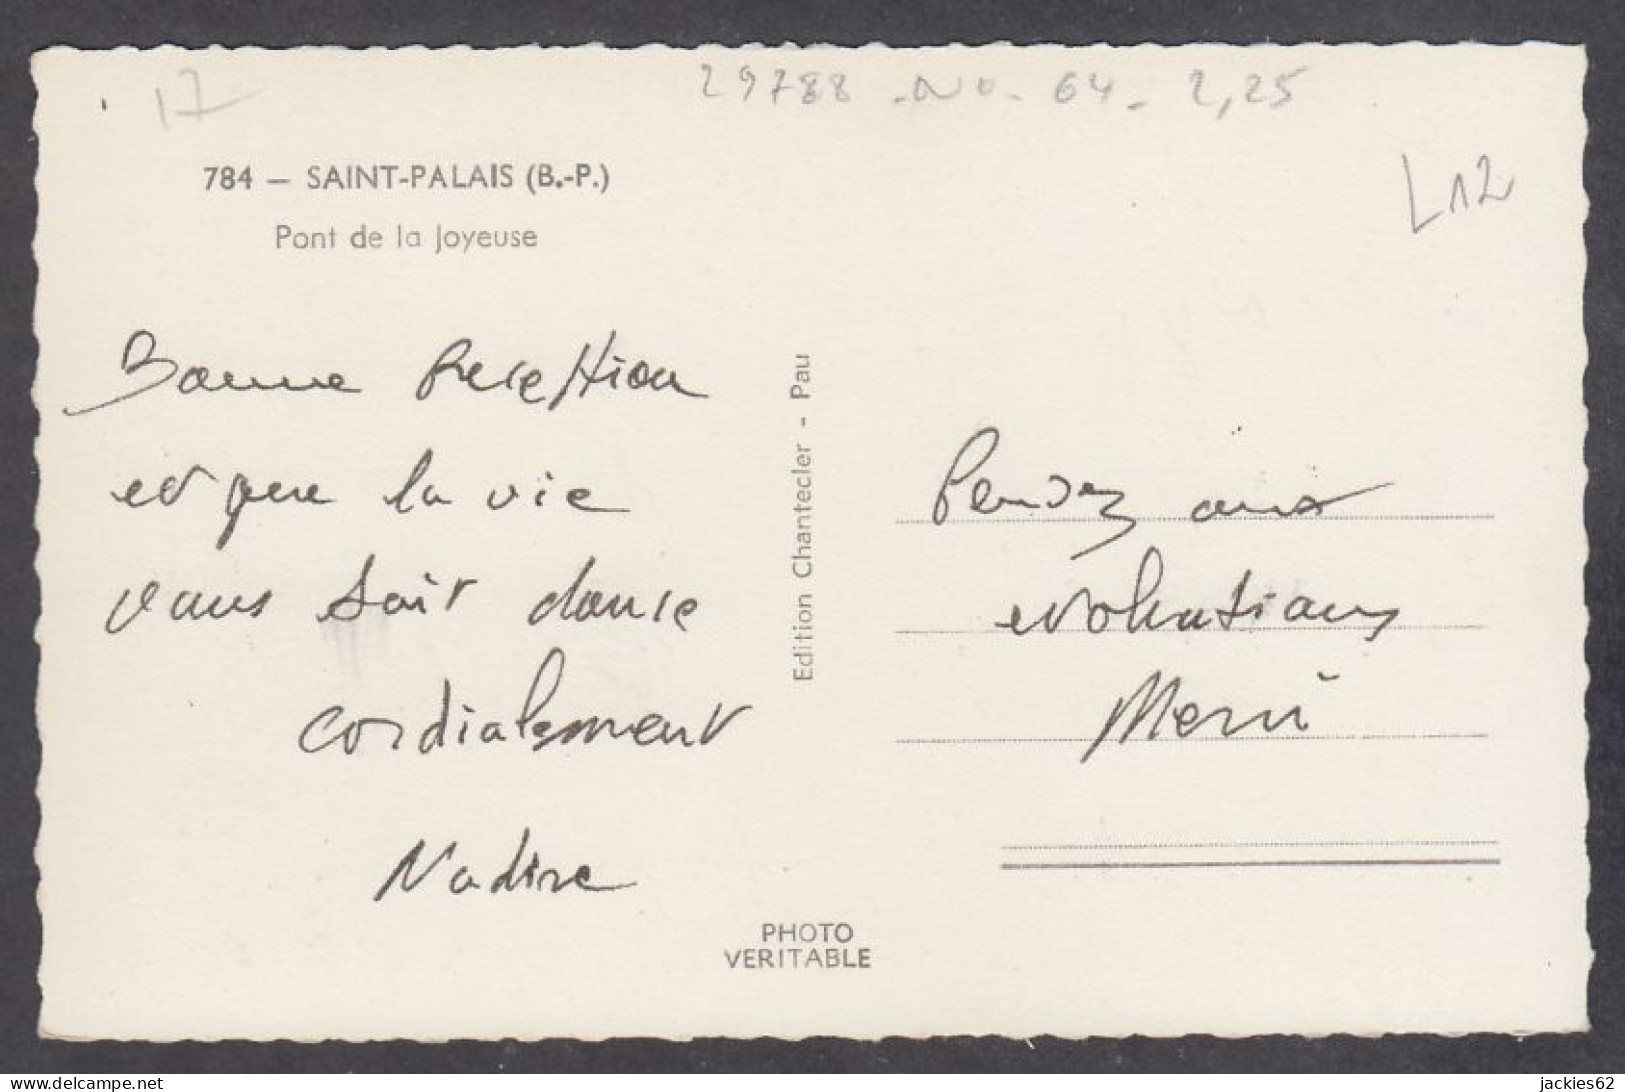 17
29788 - NO - 64 - 2,25
L12
784 — SAINT-PALAIS (B.-P.)
Pont de la Joyeuse
Bonne Reception
et que la vie
vous soit douce
cordialement
Nadine
Edition Chantecler - Pau
Pensez aux
evolutions
Merci
PHOTO
VERITABLE
delcampe.net
jackies62